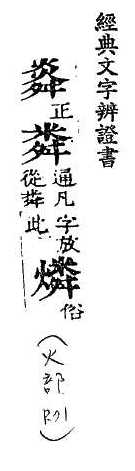 經典文字辨證書
㷠正粦通凡字從粦放此燐俗
(火部